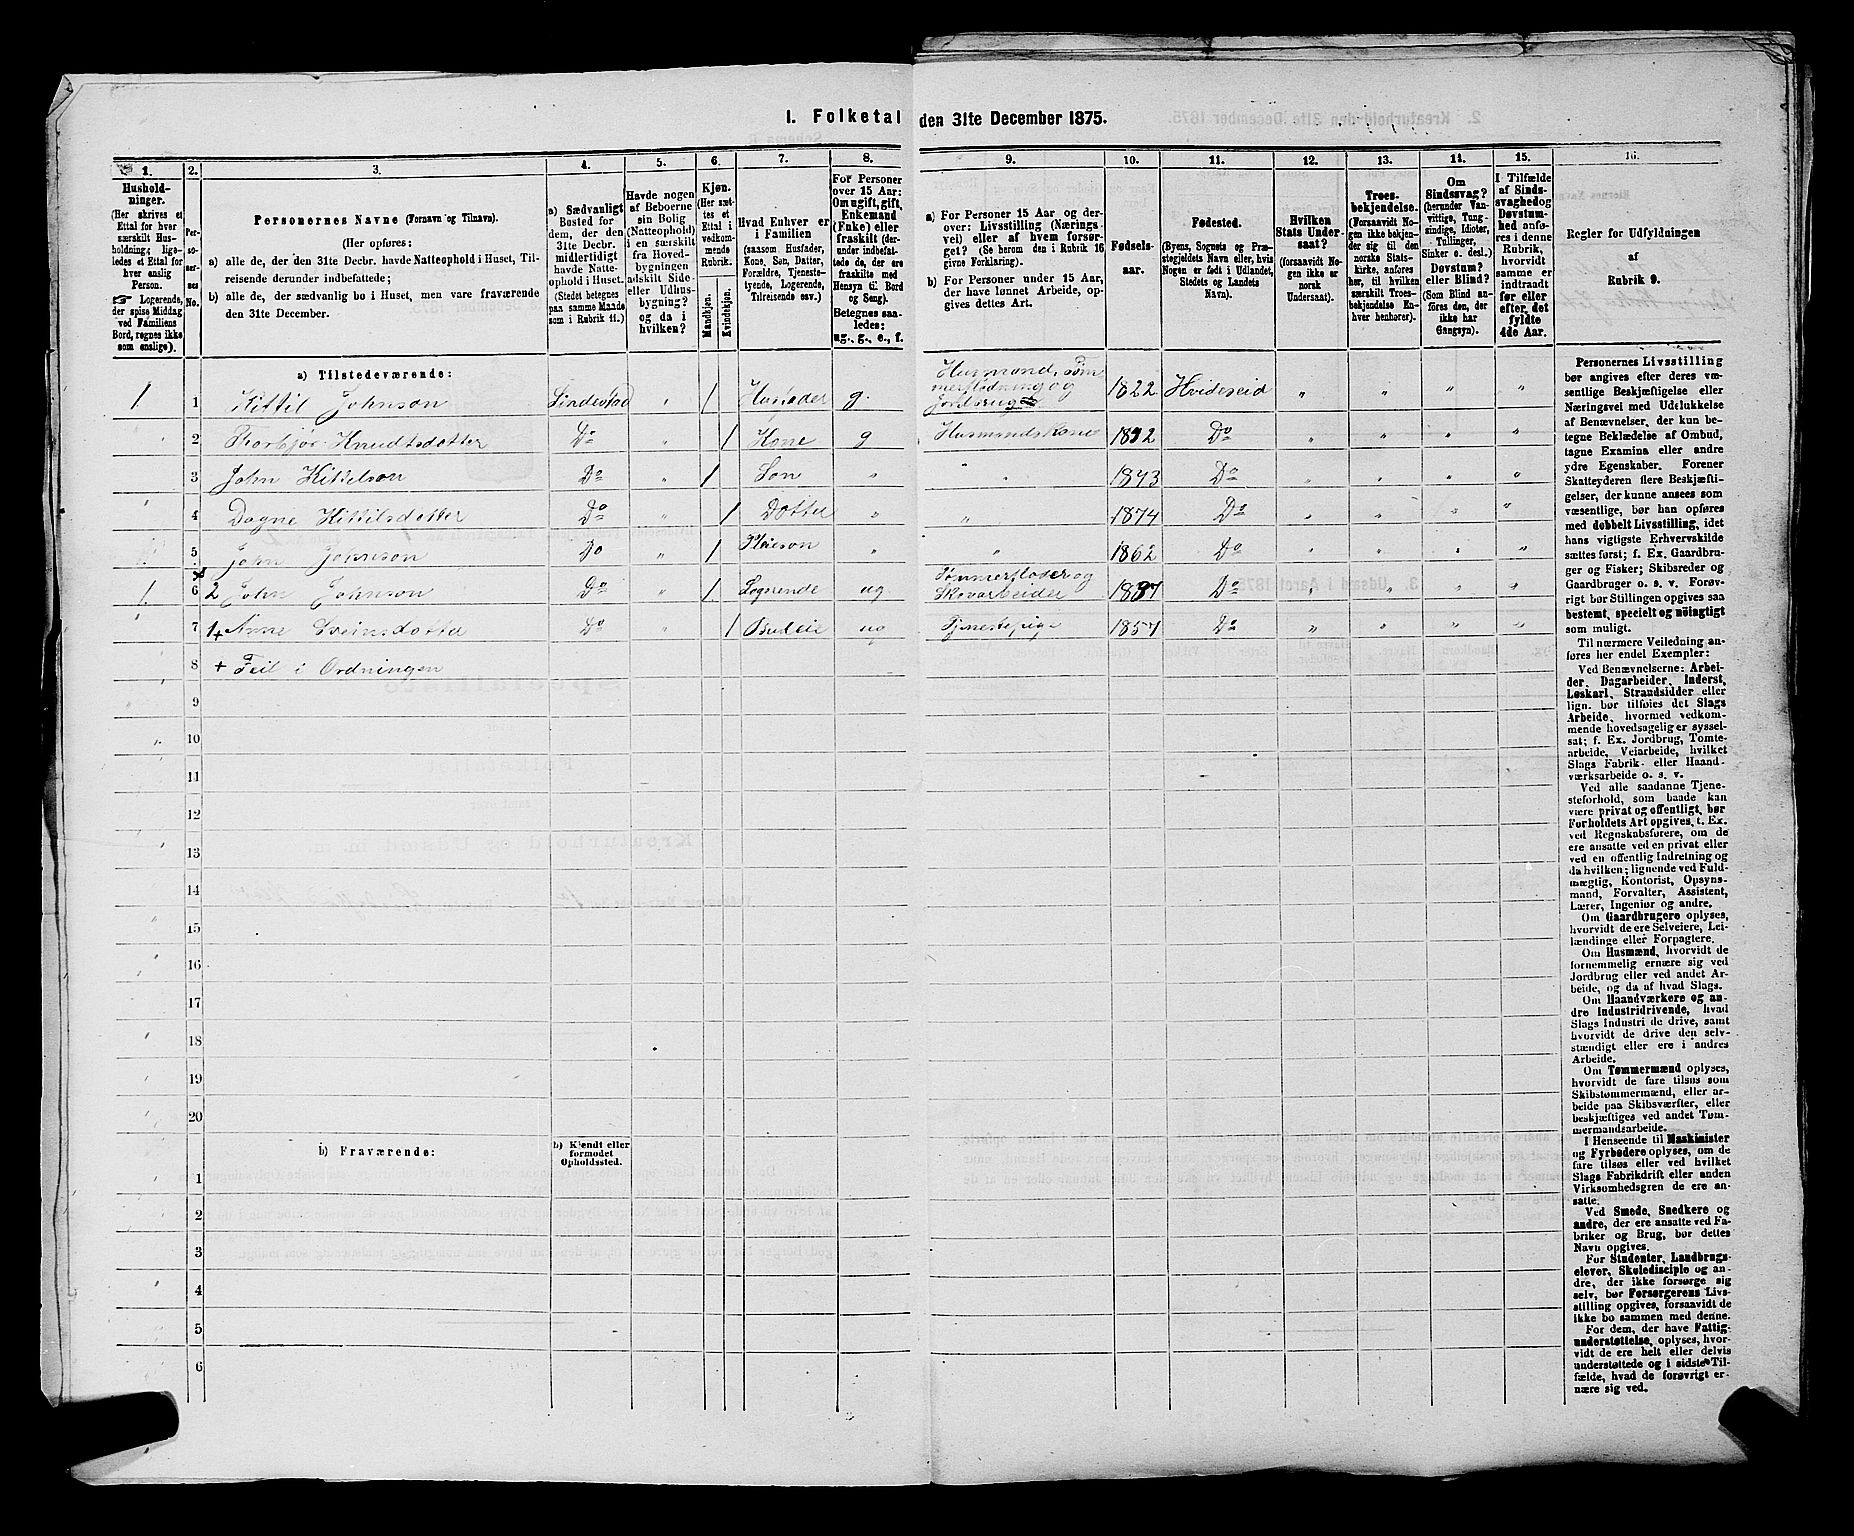 I. Folketal den 31te December 1875.
1. 2. 3. 4. 5. 6. 7. 8. 9. 10. 11. 12. 13. 14. 15. 16.
Hushold-
ninger.
(Her skrives et
Ettal for hver
særskilt Hus-
holdning; liga-
ledes et Ettal for
hver enslig
Person.
☞ Logerende,
der spise Middag
ved Familiens
Bord, regnes ikke
som enslige).
Per-
so-
ner-
nes
No.
Personernes Navne (Fornavn og Tilnavn).
(Her opføres:
a) alle de, der den 31te Decbr. havde Natteophold i Huset, Til-
reisende derunder indbefattede;
b) alle de, der sædvanlig bo i Huset, men vare fraværende
den 31te December.
a) Sædvanligt
Bosted for
dem, der den
31te Decbr.
midlertidigt
havde Natte-
ophold i Huset.
(Stedet betegnes
paa samme Maade
som i Rubrik 11.)
Havde nogen
af Beboerne
sin Bolig
(Natteophold)
i en særskilt
fra Hoved-
bygningen
adskilt Side-
eller Udhus-
bygning?
og da i
hvilken?
Kjøn.
(Her sæt-
tes et
Ettal i
vedkom-
mende
Rubrik.
Mandkjøn.
Kvindekjøn.
Hvad Enhver er
i Familien
(saasom Husfader,
Kone, Søn, Datter,
Forældre, Tjeneste-
tyende, Logerende,
Tilreisende osv.)
For Personer
over 15 Aar:
Om ugift, gift,
Enkemand
(Enke) eller
fraskilt (der-
under indbefat-
tede de, der
ere fraskilte med
Hensyn til Bord
og Seng).
Betegnes saa-
ledes:
ug., g., e., f.
a) For Personer 15 Aar og der-
over: Livsstilling (Nærings-
vei) eller af hvem forsør-
get? (Se herom den i Rubrik 16
givne Forklaring).
b) For Personer under 15 Aar,
der have lønnet Arbeide, op-
gives dettes Art.
Fødsels-
aar.
Fødested.
(Byens, Sognets og Præ-
stegjeldets Navn eller, hvis
Nogen er født i Udlandet,
Stedets og Landets
Navn).
Hvilken
Stats Under-
saat?
(forsaavidt No-
gen ikke er
norsk
Undersaat).
Troes-
bekjendelse.
(Forsaavidt No-
gen ikke bekjen-
der sig til den
norske Stats-
kirke, anføres
her, til hvilken
særskilt Troes-
bekjendelse En-
hver henhører).
Om
Sindssvag?
(herunder Van-
vittige, Tung-
sindige, Idioter,
Tullinger,
Sinker o. desl.)
Døvstum?
eller Blind?
(Som Blind an-
føres den, der
ikke har
Gangsyn).
I Tilfælde
af Sinds-
svaghed og
Døvstum-
hed anfø-
res i denne
Rubrik,
hvorvidt
samme er
indtraadt
før eller
efter det
fyldte
4de Aar.
Regler for Udfyldningen
af
Rubrik 9.
a) Tilstedeværende:
1 1 Kittil Johnson Lindestad " 1 Husfader g. Husmand, Tøm
merflødning og
Jordbrug 1822 Hvideseid " " " "
2 Thorbjør Knudtsdotter Do " 1 Kone g Husmandskone 1832 Do " " " "
3 John Kittelson Do " 1 Søn " " 1873 Do " " " "
4 Dagne Kittilsdotter Do " 1 Dotter " " 1874 Do " " " "
5 John Do " 1 Pleieson " " 1862 Do " " " "
1 6 2 John Johnson Do " 1 Logerende ug Tømmerfløder og
Skovarbeider 1837 Do " " " "
7 1+ Anne Sveinsdotter Do " 1 Budeie ug Tjenestepige 1857 Do " " " "
8 + Feil i Ordningen
9
10
11
12
13
14
15
16
17
18
19
20
b) Fraværende:
b) Kjendt eller
formodet
Opholdssted.
1
2
3
4
5
6
Personernes Livsstilling
bør angives efter deres væ-
sentlige Beskjæftigelse eller
Næringsvei med Udelukkelse
af Benævnelser, der kun be-
tegne Beklædelse af Ombud,
tagne Examina eller andre
ydre Egenskaber. Forener
Skatteyderen flere Beskjæfti-
gelser, der kunne ansees som
væsentlige, bør han opføres
med dobbelt Livsstilling, idet
hans vigtigste Erhvervskilde
sættes først; f. Ex. Gaardbru-
ger og Fisker; Skibsreder og
Gaardbruger o. s. v. Forøv-
rigt bør Stillingen opgives saa
bestemt, specielt og nöiagtigt
som muligt.
Til nærmere Veiledning an-
føres her endel Exempler:
Ved Benævnelserne: Arbei-
der, Dagarbeider, Inderst,
Løskarl, Strandsidder eller
lign. bør tilføies det Slags
Arbeide, hvormed vedkom-
mende hovedsagelig er syssel-
sat; f. Ex. Jordbrug, Tomte-
arbeide, Veiarbeide, hvilket
Slags Fabrik- eller Haand-
værksarbeide o. s. v.
Ved alle saadanne Tjene-
steforhold, som baade kan
være privat og offentligt, bør
Forholdets Art opgives, t. Ex.
ved Regnskabsførere, om de
ere ansatte ved en privat eller
ved en offentlig Indretning og
da hvilken; lignende ved Fuld-
mægtig, Kontorist, Opsyns-
mand, Forvalter, Assistent,
Lærer, Ingeniør og andre.
Om Gaardbrugere oplyses,
hvorvidt de ere Selveiere, Lei-
lændinge eller Forpagtere.
Om Husmænd, hvorvidt de
fornemmelig ernære sig ved
Jordbrug eller ved andet Ar-
beide, og da af hvad Slags.
Om Haandværkere og an-
dre Industridrivende, hvad
Slags Industri de drive, samt
hvorvidt de drive den selv-
stændigt eller ere i andres
Arbeide.
Om Tømmermænd oplyses,
hvorvidt de fare tilsøs som
Skibstømmermænd, eller ar-
beide paa Skibsværfter, eller
beskjæftiges ved andet Tøm-
mermandsarbeide.
I Henseende til Maskinister
og Fyrbødere oplyses, om de
fare tilsøs eller ved hvilket
Slags Fabrikdrift eller anden
Virksomhedsgren de ere an-
satte.
Ved Smede, Snedkere og
andre, der ere ansatte ved Fa-
briker og Brug, bør dettes
Navn opgives.
For Studenter, Landbrugs-
elever, Skoledisciple og an-
dre, der ikke forsørge sig
selv, bør Forsørgerens Livs-
stilling opgives, forsaavidt de
ikke bo sammen med denne.
For dem, der have Fattig-
understøttelse, oplyses, hvor-
vidt de ere helt eller delvis
understøttede og i sidste Til-
fælde, hvad de forøvrigt er-
nære sig ved.